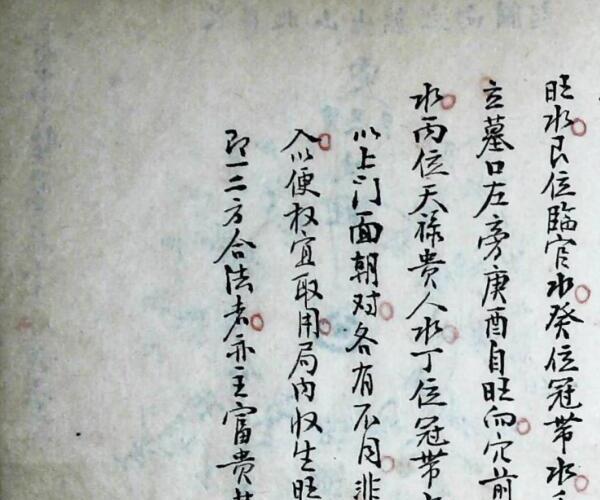 旺水艮位臨官水癸位冠帶水
立墓口左旁庚酉自旺向穴前
水丙位天禄貴人水丁位冠帶
以上门面朝对各有不同非
入以便权宜取用局内收生旺
即一二方合法者亦主富貴